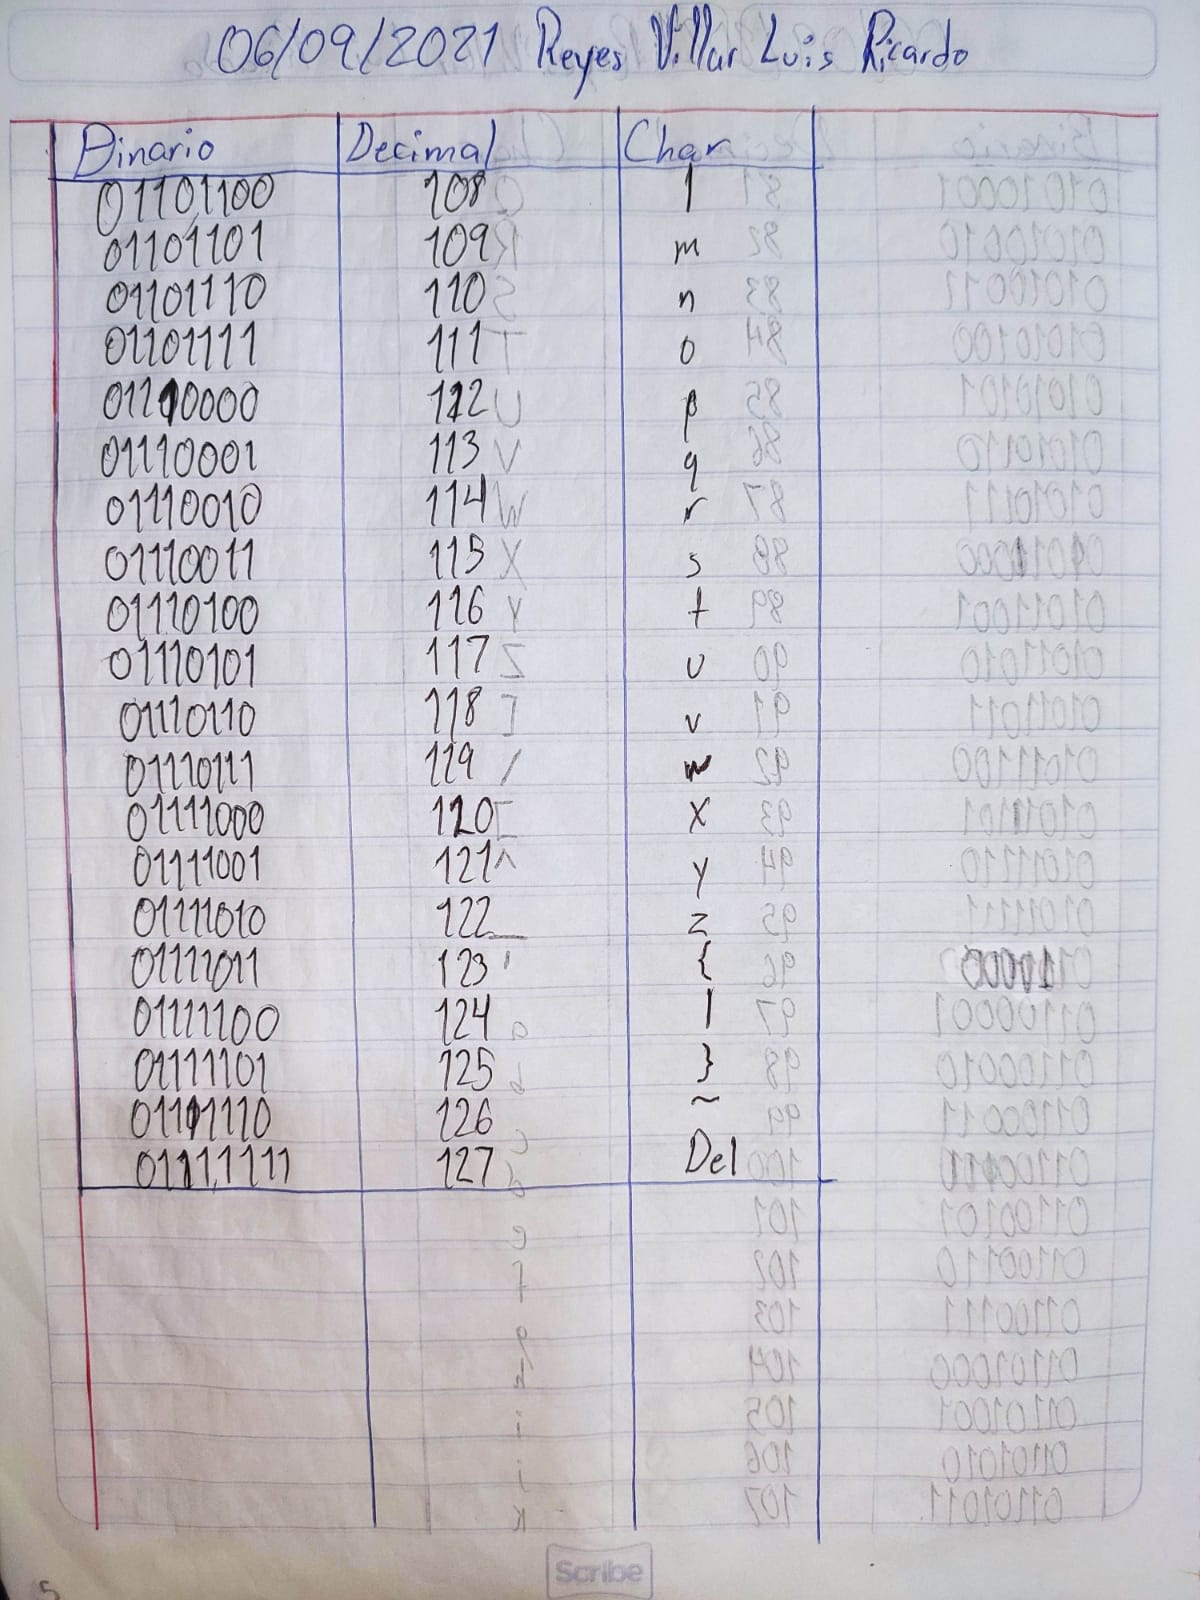 06/09/2021 Reyes Villar Luis Ricardo
Binario Decimal Char
01101100 108 l
01101101 109 m
01101110 110 n
01101111 111 o
01110000 112 p
01110001 113 q
01110010 114 r
01110011 115 s
01110100 116 t
01110101 117 u
01110110 118 v
01110111 119 w
01111000 120 x
01111001 121 y
01111010 122 z
01111011 123 {
01111100 124 |
01111101 125 }
01111110 126 ~
01111111 127 Del
Scribe
5